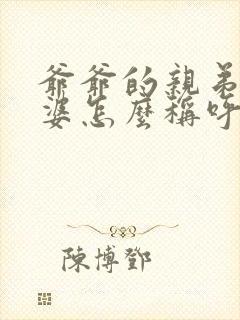 爺爺的親弟
婆怎麼稱呼
陳博鄧